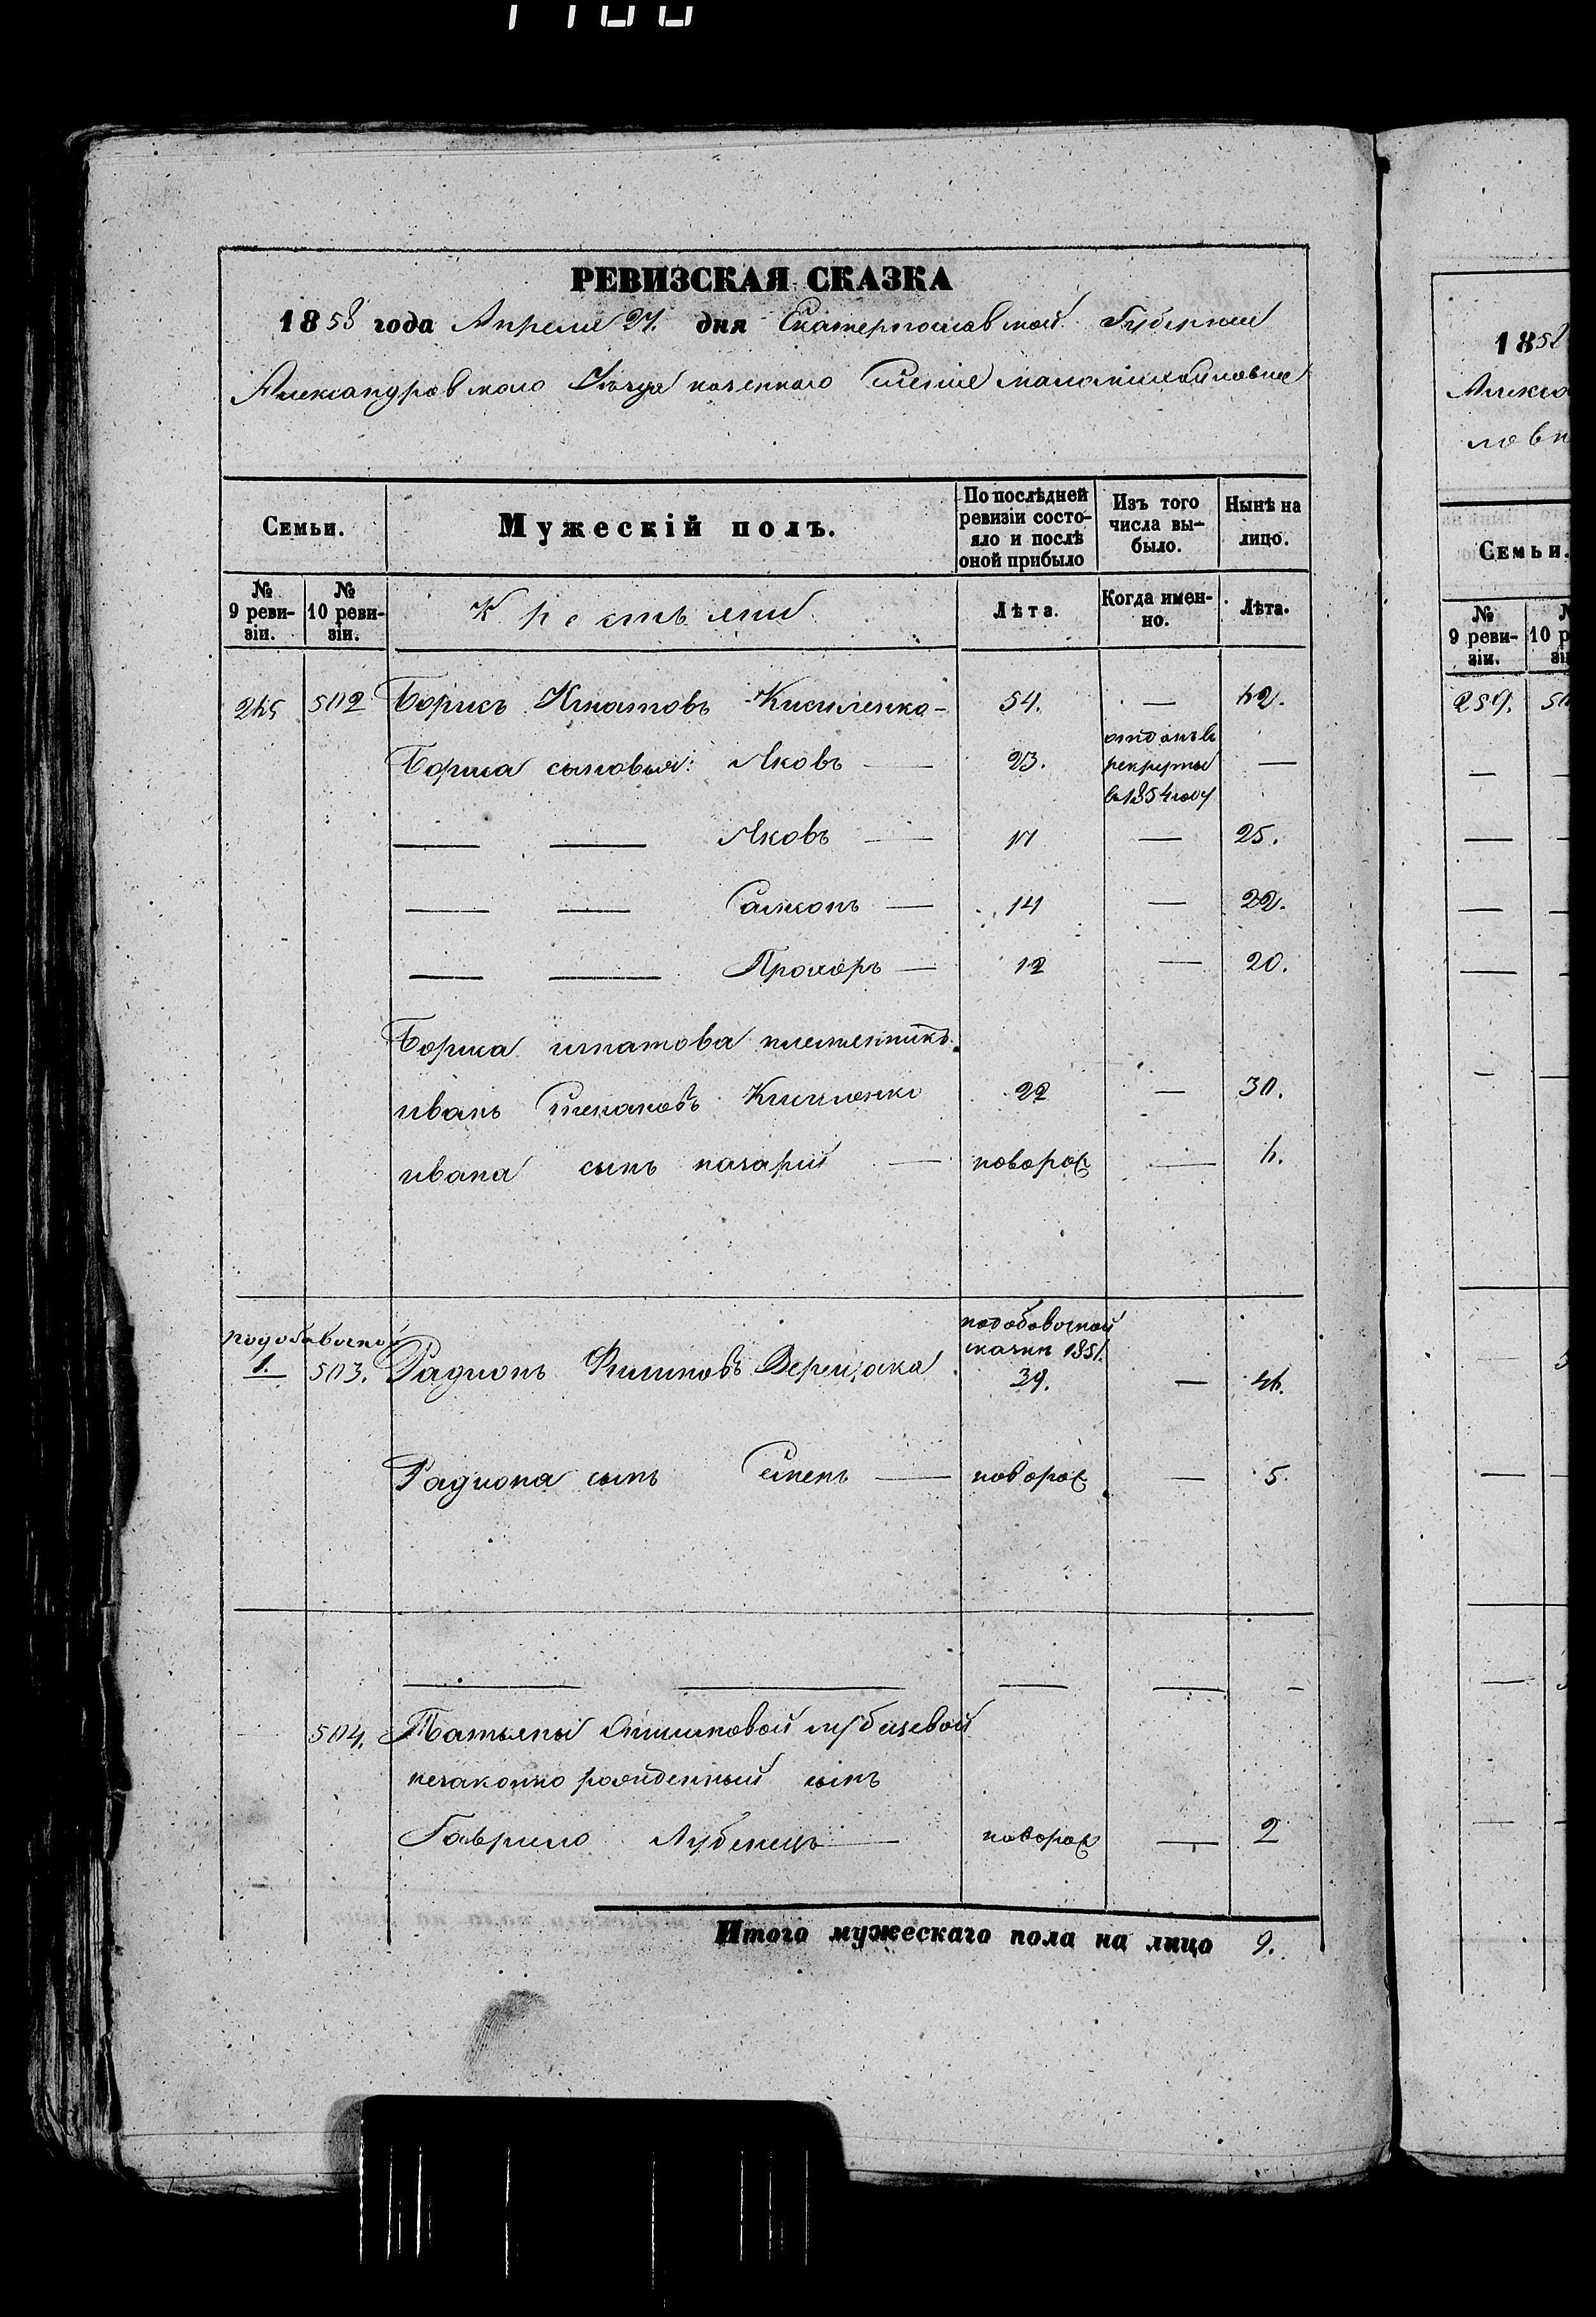 РЕВИЗСКАЯ СКАЗКА
1858 года Апреля 27. дня Екатеринославской Губернии
Александровского Уезда казенного Селенія маломихайловки
Семьи.
Мужескій полъ.
По послѣдней ревизіи состояло и послѣ оной прибыло
Изъ того числа выбыло.
Нынѣ на лицо.
№ 9 ревизіи.
№ 10 ревизіи.
Крестьяне
Лѣта.
Когда именно.
Лѣта.
245 502 Борисъ Игнатовъ Кисиленко — 54. — 62.
Бориса сыновья: Яковъ — 23. отданъ в рекруты в 1854 году —
— — Яковъ — 17 — 25.
— — Самсонъ — 14 — 22.
— — Прохоръ — 12 — 20.
Бориса игнатова племенникъ
иванъ Степановъ Кисиленко 22 — 30.
ивана сынъ назарій — новорож — 6.
подобавочной 1. 503. Радионъ Филиповъ Верещака подобовочной сказки 1851. 39. — 46.
Радиона сынъ Семенъ — новорож — 5.
— — — — -
504. Татьяны
незаконно рожденный сынъ
Гаврило Лубенецъ — новорож — 2
Итого мужескаго пола на лицо 9.
185
Алекса
ловк
Семьи.
№ 9 ревизіи.
259.